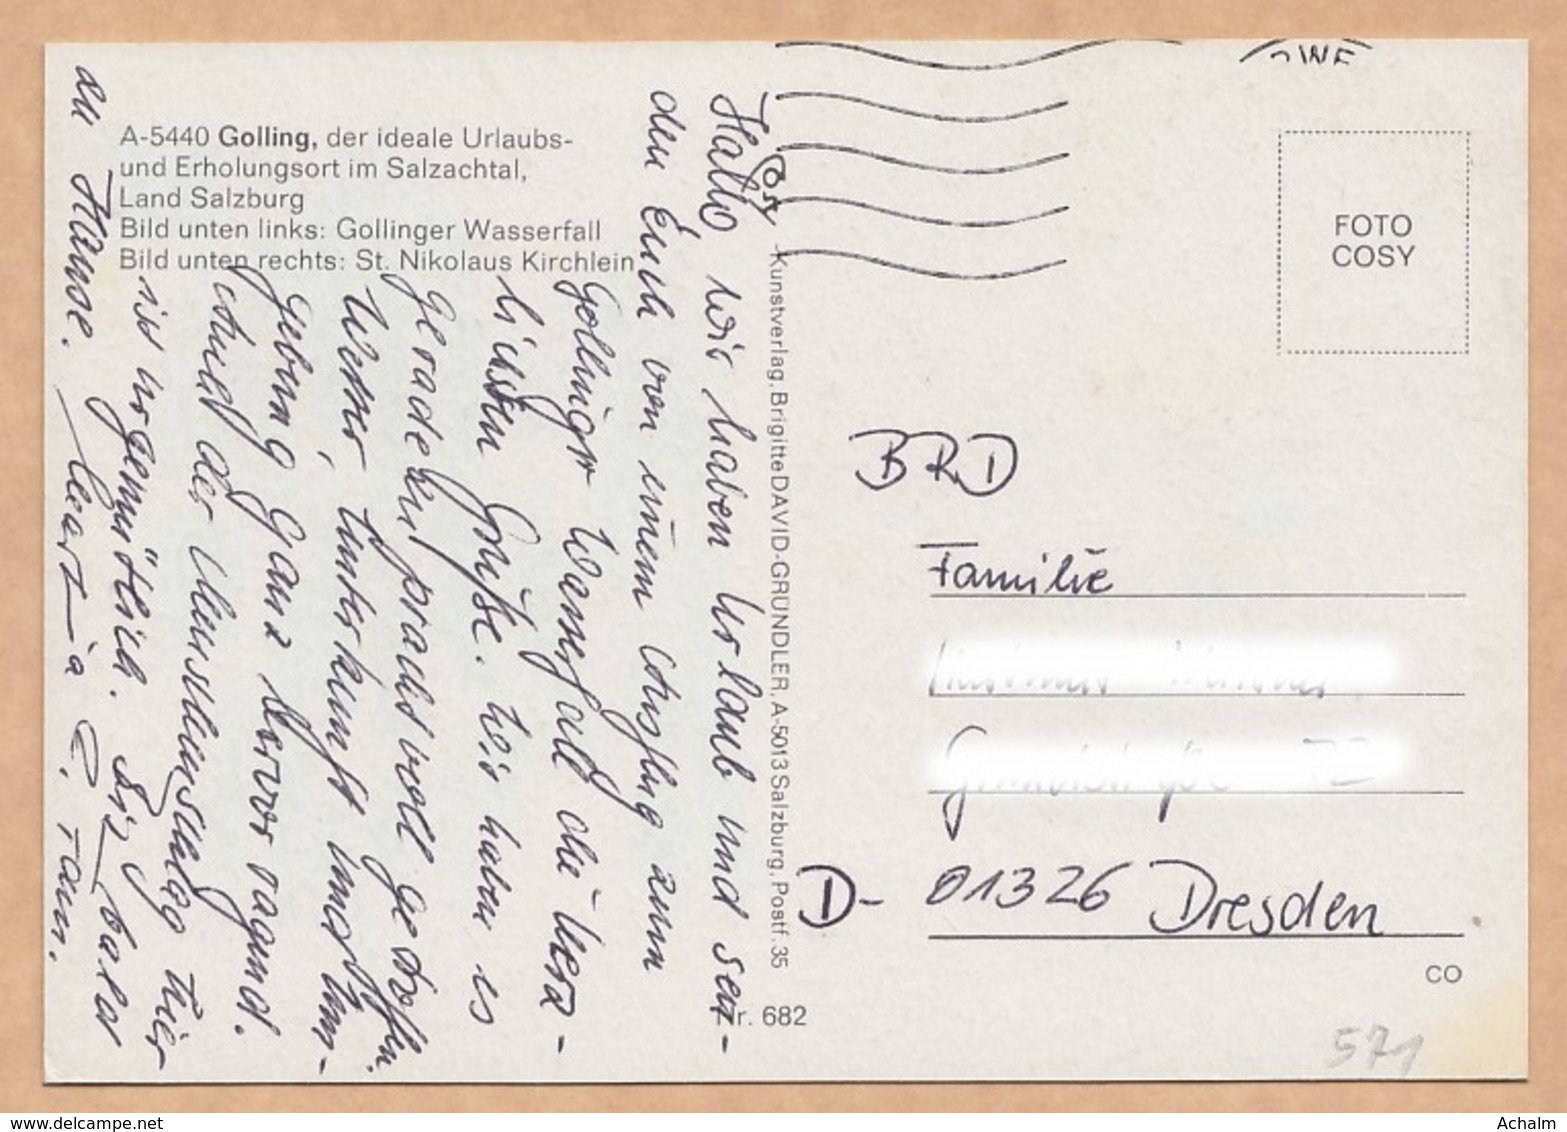 A-5440 Golling, der ideale Urlaubs-
und Erholungsort im Salzachtal,
Land Salzburg
Bild unten links: Gollinger Wasserfall
Bild unten rechts: St. Nikolaus Kirchlein
Hallo, wir haben Urlaub und sen-
den Euch von einem Ausflug zum
Gollinger Wasserfall die herz-
lichsten Grüße. Wir haben es
gerade zu prachtvoll getroffen.
Wetter, Unterkunft und Um-
gebung ganz hervorragend.
Auch der Menschenschlag hier
ist urgemütlich. Bis bald
zu Hause.
Cosy
Kunstverlag. Brigitte DAVID-GRÜNDLER, A-5013 Salzburg, Postf. 35
Nr. 682
FOTO
COSY
BRD
Familie
D- 01326 Dresden
CO
571
delcampe.net
Achalm